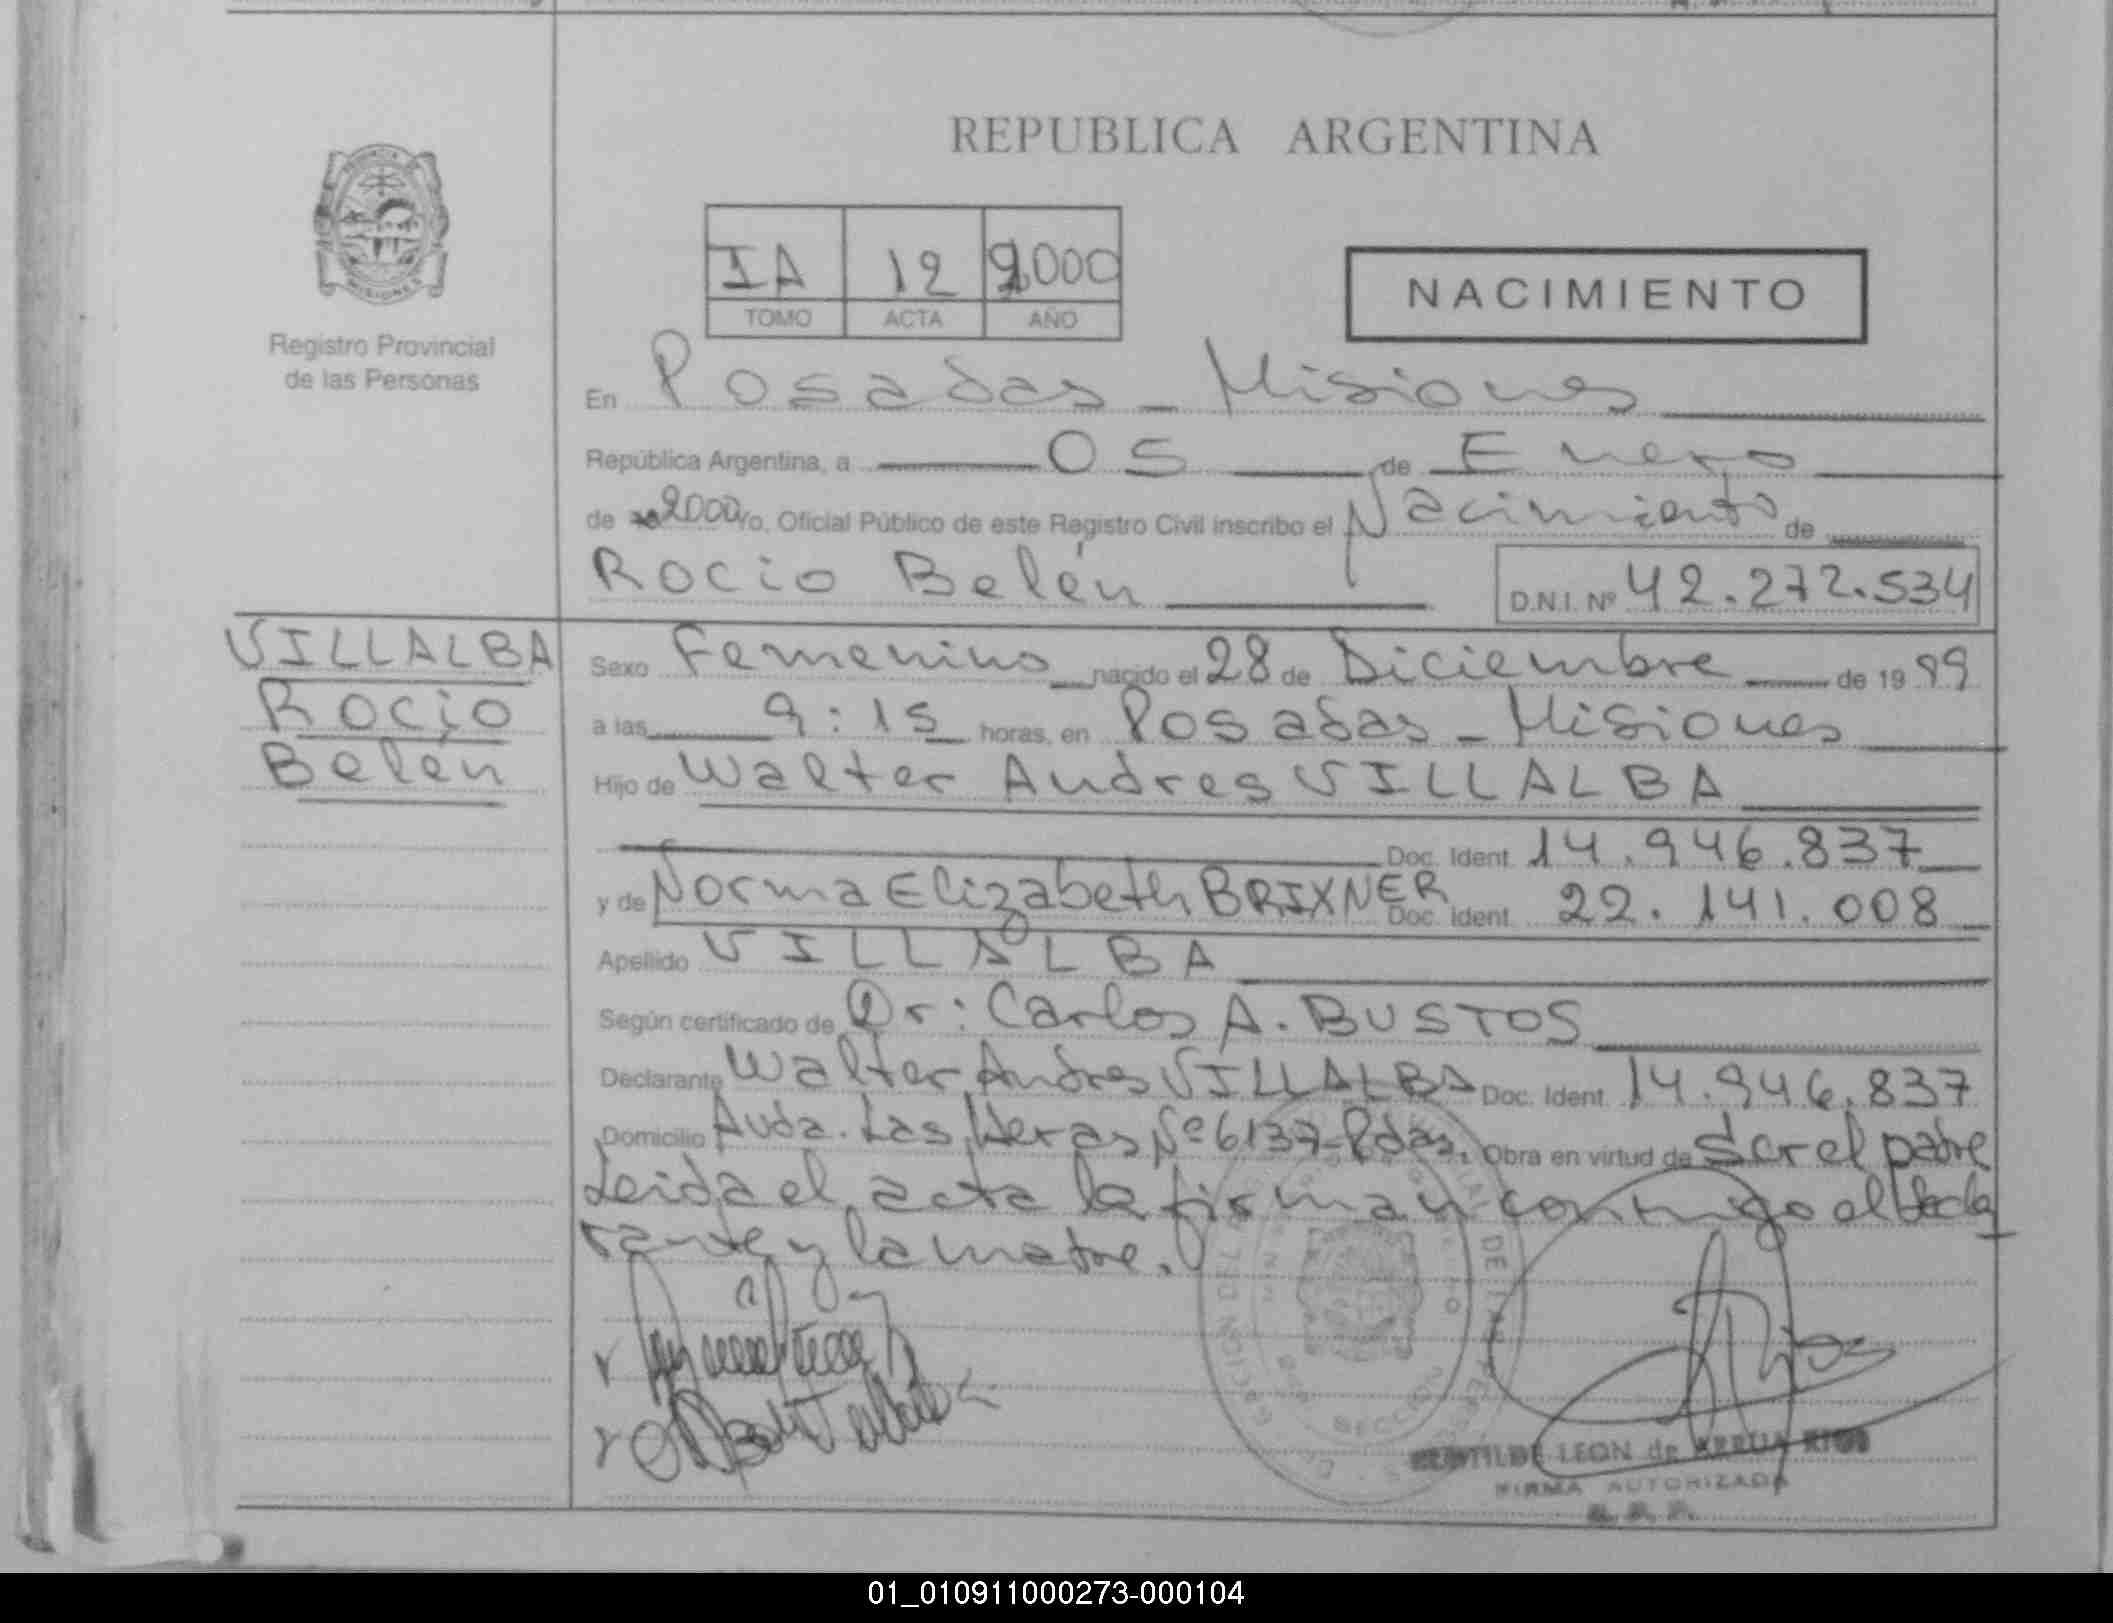 REPUBLICA ARGENTINA
IA 12 2000
TOMO ACTA AÑO
NACIMIENTO
Registro Provincial
de las Personas
En Posadas - Misiones
República Argentina, a 05 de Enero
de 2000 yo, Oficial Público de este Registro Civil inscribo el Nacimiento de
Rocio Belén D.N.I. Nº 42.272.534
VILLALBA
Rocio
Belén
Sexo Femenino nacido el 28 de Diciembre de 19 99
a las 9:15 horas, en Posadas - Misiones
Hijo de Walter Andres VILLALBA
Doc. Ident. 14.946.837
y de Norma Elizabeth BRIXNER Doc. Ident. 22.141.008
Apellido VILLALBA
Según certificado de Dr: Carlos A. BUSTOS
Declarante Walter Andres VILLALBA Doc. Ident. 14.946.837
Domicilio Avda. Las Heras Nº 6137-Pdas. Obra en virtud de Ser el padre
Leida el acta la firman conmigo el decla
rante y la madre.
LEON de ARRUA RIOS
FIRMA AUTORIZADA
01_010911000273-000104